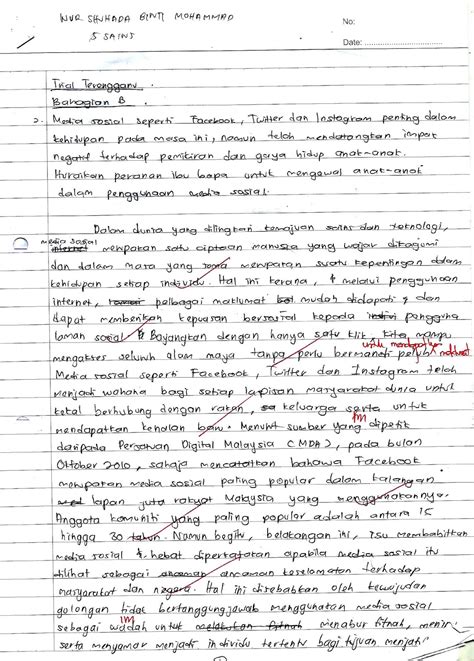 NUR SHUHADA BINTI MOHAMMAD
5 SAINS
No:
Date:
Trial Terengganu.
Bahagian B.
2. Media sosial seperti Facebook, Twitter dan Instagram penting dalam
kehidupan pada masa ini, namun telah mendatangkan impak
negatif terhadap pemikiran dan gaya hidup anak-anak.
Huraikan peranan ibu bapa untuk mengawal anak-anak
dalam penggunaan media sosial.
Dalam dunia yang dilingkari kemajuan sains dan teknologi,
media sosial
internet merupakan satu ciptaan manusia yang wajar dikagumi
dan dalam masa yang sama merupakan suatu kepentingan dalam
kehidupan setiap individu. Hal ini kerana, melalui penggunaan
internet, pelbagai maklumat mudah didapati dan
dapat memberikan kepuasan bersosial kepada pengguna
laman sosial. Bayangkan dengan hanya satu klik, kita mampu
untuk mendapatkan
mengakses seluruh alam maya tanpa perlu bermandi peluh maklumat
Media sosial seperti Facebook, Twitter dan Instagram telah
menjadi wahana bagi setiap lapisan masyarakat dunia untuk
kekal berhubung dengan rakan, keluarga serta untuk
mendapatkan kenalan baru. Menurut sumber yang dipetik
daripada Persatuan Digital Malaysia (MDA), pada bulan
Oktober 2010, sahaja mencatatkan bahawa Facebook
merupakan media sosial paling popular dalam kalangan
lapan juta rakyat Malaysia yang menggunakannya.
Anggota komuniti yang paling popular adalah antara 15
hingga 30 tahun. Namun begitu, belakangan ini, isu membabitkan
media sosial hebat diperkatakan apabila media sosial itu
dilihat sebagai ancaman keselamatan terhadap
masyarakat dan negara. Hal ini disebabkan oleh kewujudan
golongan tidak bertanggungjawab menggunakan media sosial
sebagai wadah untuk melakukan fitnah menabur fitnah,
serta menyamar menjadi individu tertentu bagi tujuan